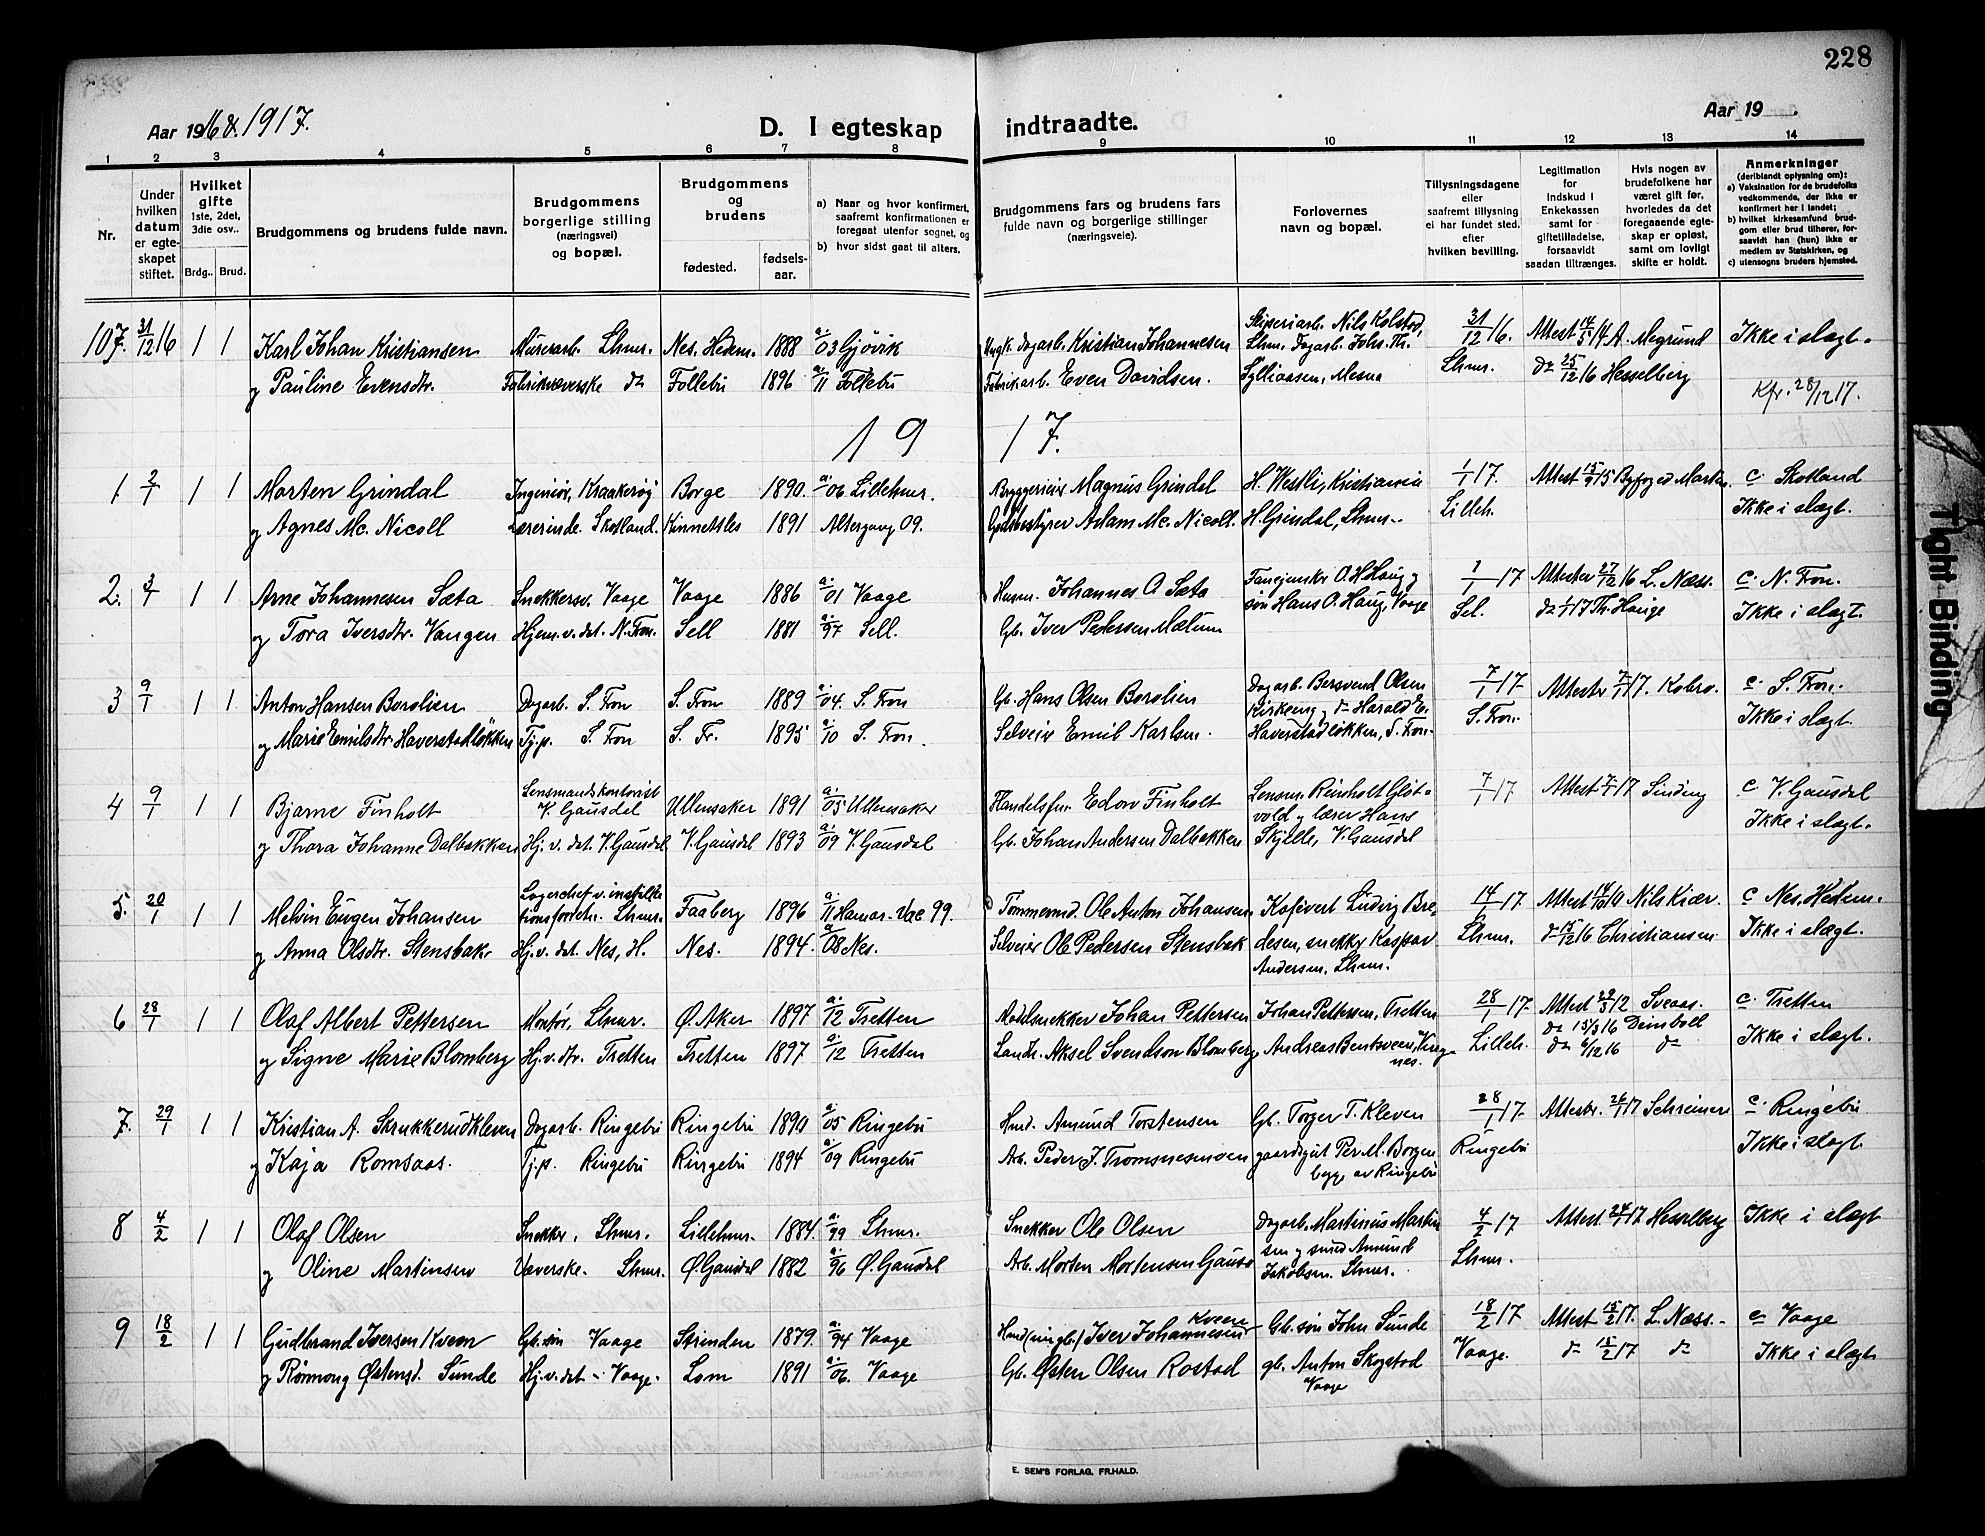 228
Aar 1916 & 1917.
D. I egteskap indtraadte.
Aar 19 .
1 2 3 4 5 6 7 8 9 10 11 12 13 14
Nr.
Under hvilken datum er egteskapet stiftet.
Hvilket gifte 1ste, 2det, 3die osv..
Brdg.. Brud.
Brudgommens og brudens fulde navn.
Brudgommens borgerlige stilling (næringsvei) og bopæl.
Brudgommens og brudens
fødested.
fødselsaar.
a) Naar og hvor konfirmert, saafremt konfirmationen er foregaat utenfor sognet, og
b) hvor sidst gaat til alters.
Brudgommens fars og brudens fars fulde navn og borgerlige stillinger (næringsveie).
Forlovernes navn og bopæl.
Tillysningsdagene eller saafremt tillysning ei har fundet sted, efter hvilken bevilling.
Legitimation for Indskud i Enkekassen samt for giftetilladelse, forsaavidt saadan tiltrænges.
Hvis nogen av brudefolkene har været gift før, hvorledes da det foregaaende egteskap er opløst, samt om lovligt skifte er holdt.
Anmerkninger (deriblandt oplysning om):
a) Vaksination for de brudefolks vedkommende, der ikke er konfirmert her i landet;
b) hvilket kirkesamfund brudgom eller brud tilhører, forsaavidt han (hun) ikke er medlem av Statskirken, og
c) utensogns bruders hjemsted.
107. 31/12 16 1 1 Karl Johan Kristiansen Murerarb. Lhmr. Nes. Hedem. 1888 a. 03 Gjøvik dagarb. Kristian Johannesen Nils Kolstad, 31/12 16. Attest 14/5 14 A. Megrund Ikke i slægt.
og Pauline Evensdtr. Fabrikvæverske do Follebu 1896 a. 11 Follebu Fabrikarb. Even Davidsen. Lhmr. Dagarb. Johs. Th. Sylliaasen, Mesna Lhmr. do 25/12 16 Hesselberg Kfr. 28/12 17.
19 17.
1 2/1 1 1 Morten Grindal Ingeniør, Kraakerøy Borge 1890. a. 06 Lillehmr. Bryggerieier Magnus Grindal H. Westli, Kristiania 1/1 17. Attest 15/9 15 Byfoged Martin c. Skotland
og Agnes Mc. Nicoll Lærerinde. Skotland. Kinnettles 1891 Altergang 09. Adam Mc. Nicoll. H. Grindal, Lhmr. Lilleh. Ikke i slægt.
2. 3/1 1 1 Arne Johannesen Sæta Snekkersv. Vaage Vaage 1886 a. 01 Vaage Husm. Johannes O. Sæta Fanejunkr O. H. Haug og 1/1 17 Attester 27/12 16 L. Næss. c. N. Fron.
og Tora Iversdtr. Vangen Hjem. v. det. N. Fron. Sell 1881 a. 97 Sell. Gb. Iver Pedersen Mælum søn Hans O. Haug, Vaage Sel. do 1/1 17 Th. Hauge Ikke i slægt.
3 9/1 1 1 Anton Hansen Borolien Dagarb. S. Fron S. Fron 1889 a. 04. S. Fron Gb. Hans Olsen Borolien Dagarb. Bersvend Olsen 7/1 17. Attester 7/1 17. Kobro. c. S. Fron.
og Marie Emilsdtr. Haverstadløkken Tj.p. S. Fron S. Fr. 1895 a. 10 S. Fron. Selveier Emil Karlsen. Kirkeeng, do Harald E. Haverstadløkken, S. Fron. S. Fron. Ikke i slægt.
4 9/1 1 1 Bjarne Finholt Lensmandskontorist V. Gausdal Ullensaker 1891 a. 05 Ullensaker Handelsfm. Edov Finholt Lensm. Reinholt Gløtvold og lærer Hans 7/1 17 Attest 7/1 17 Sinding c V. Gausdal
og Thora Johanne Dalbakken Hj. v. det. V. Gausdal V. Gausdal 1893 a. 09 V. Gausdal Gb. Johan Andersen Dalbakken Skjelle, V. Gausdal Ikke i slægt.
5. 20/1 1 1 Melvin Eugen Johansen Lagerchef v. installationsforretn. Lhmr. Faaberg 1896 a. 11 Hamar. Vac 99. Tømmermd. Ole Anton Johansen Kafévert Ludvig Bredesen, 14/1 17 Attest 14/10 14 Nils Kiær. c Nes. Hedem.
og Anna Olsdtr. Stensbak. Hj. v. det. Nes, H. Nes. 1894. a. 08 Nes. Selveier Ole Pedersen Stensbak snekker Kaspar Andersen. Lhmr. Lhmr. do 15/12 16 Christiansen Ikke i slægt.
6 28/1 1 1 Olaf Albert Pettersen Montør, Lhmr. Ø. Aker 1897 a. 12 Tretten Modelsnekker Johan Pettersen Johan Pettersen, Tretten 28/1 17. Attest 29/3 12 Sveaas. c. Tretten
og Signe Marie Blomberg Hj. v. dtr. Tretten Tretten 1897. a. 12 Tretten Landh. Aksel Svendson Blomberg Andreas Bentsveen, Vingnes. Lilleh. do 15/3 16 Deinboll do 6/12 16 do Ikke i slægt.
7. 29/1 1 1 Kristian A. Skrukkerudkleven Dagarb. Ringebu Ringebu 1890 a. 05 Ringebu Husmd. Amund Torstensen Gb. Torger T. Kleven 28/1 17. Attester. 26/1 17 Schreiner c. Ringebu
og Kaja Romsaas. Tj.p. Ringebu Ringebu 1894 a. 09 Ringebu Arb. Peder J. Tromsnesmoen gaardsgut Per M. Borgen begge av Ringebu Ringebu Ikke i slægt
8 4/2 1 1 Olaf Olsen Snekker, Lhmr. Lillehmr. 1884. a. 99 Lhmr. Snekker Ole Olsen Dagarb. Martinus Martinsen 4/2 17 Attest. 24/1 17 Hesselberg Ikke i slægt
og Oline Martinsen Væverske. Lhmr. Ø. Gausdal 1882 a. 96 Ø. Gausdal Arb. Morten Mortensen Gausa og smed Amund Jakobsen. Lhmr. Lhmr.
9 18/2 1 1 Gudbrand Iversen Kveen Gb. søn Vaage Strinden 1879. a. 94 Vaage Iver Johannesen Kveen Gb. søn John Sunde 18/2 17 Attest 15/2 17. L. Næss. c Vaage
og Rønnaug Østensd. Sunde Hj. v. det. Vaage. Lom 1891 a. 06. Vaage Gb. Østen Olsen Rostad gb. Anton Skogstad Vaage Vaage. do 15/2 17 do Ikke i slægt
E. SEM'S FORLAG, FR.HALD.
Tight Binding